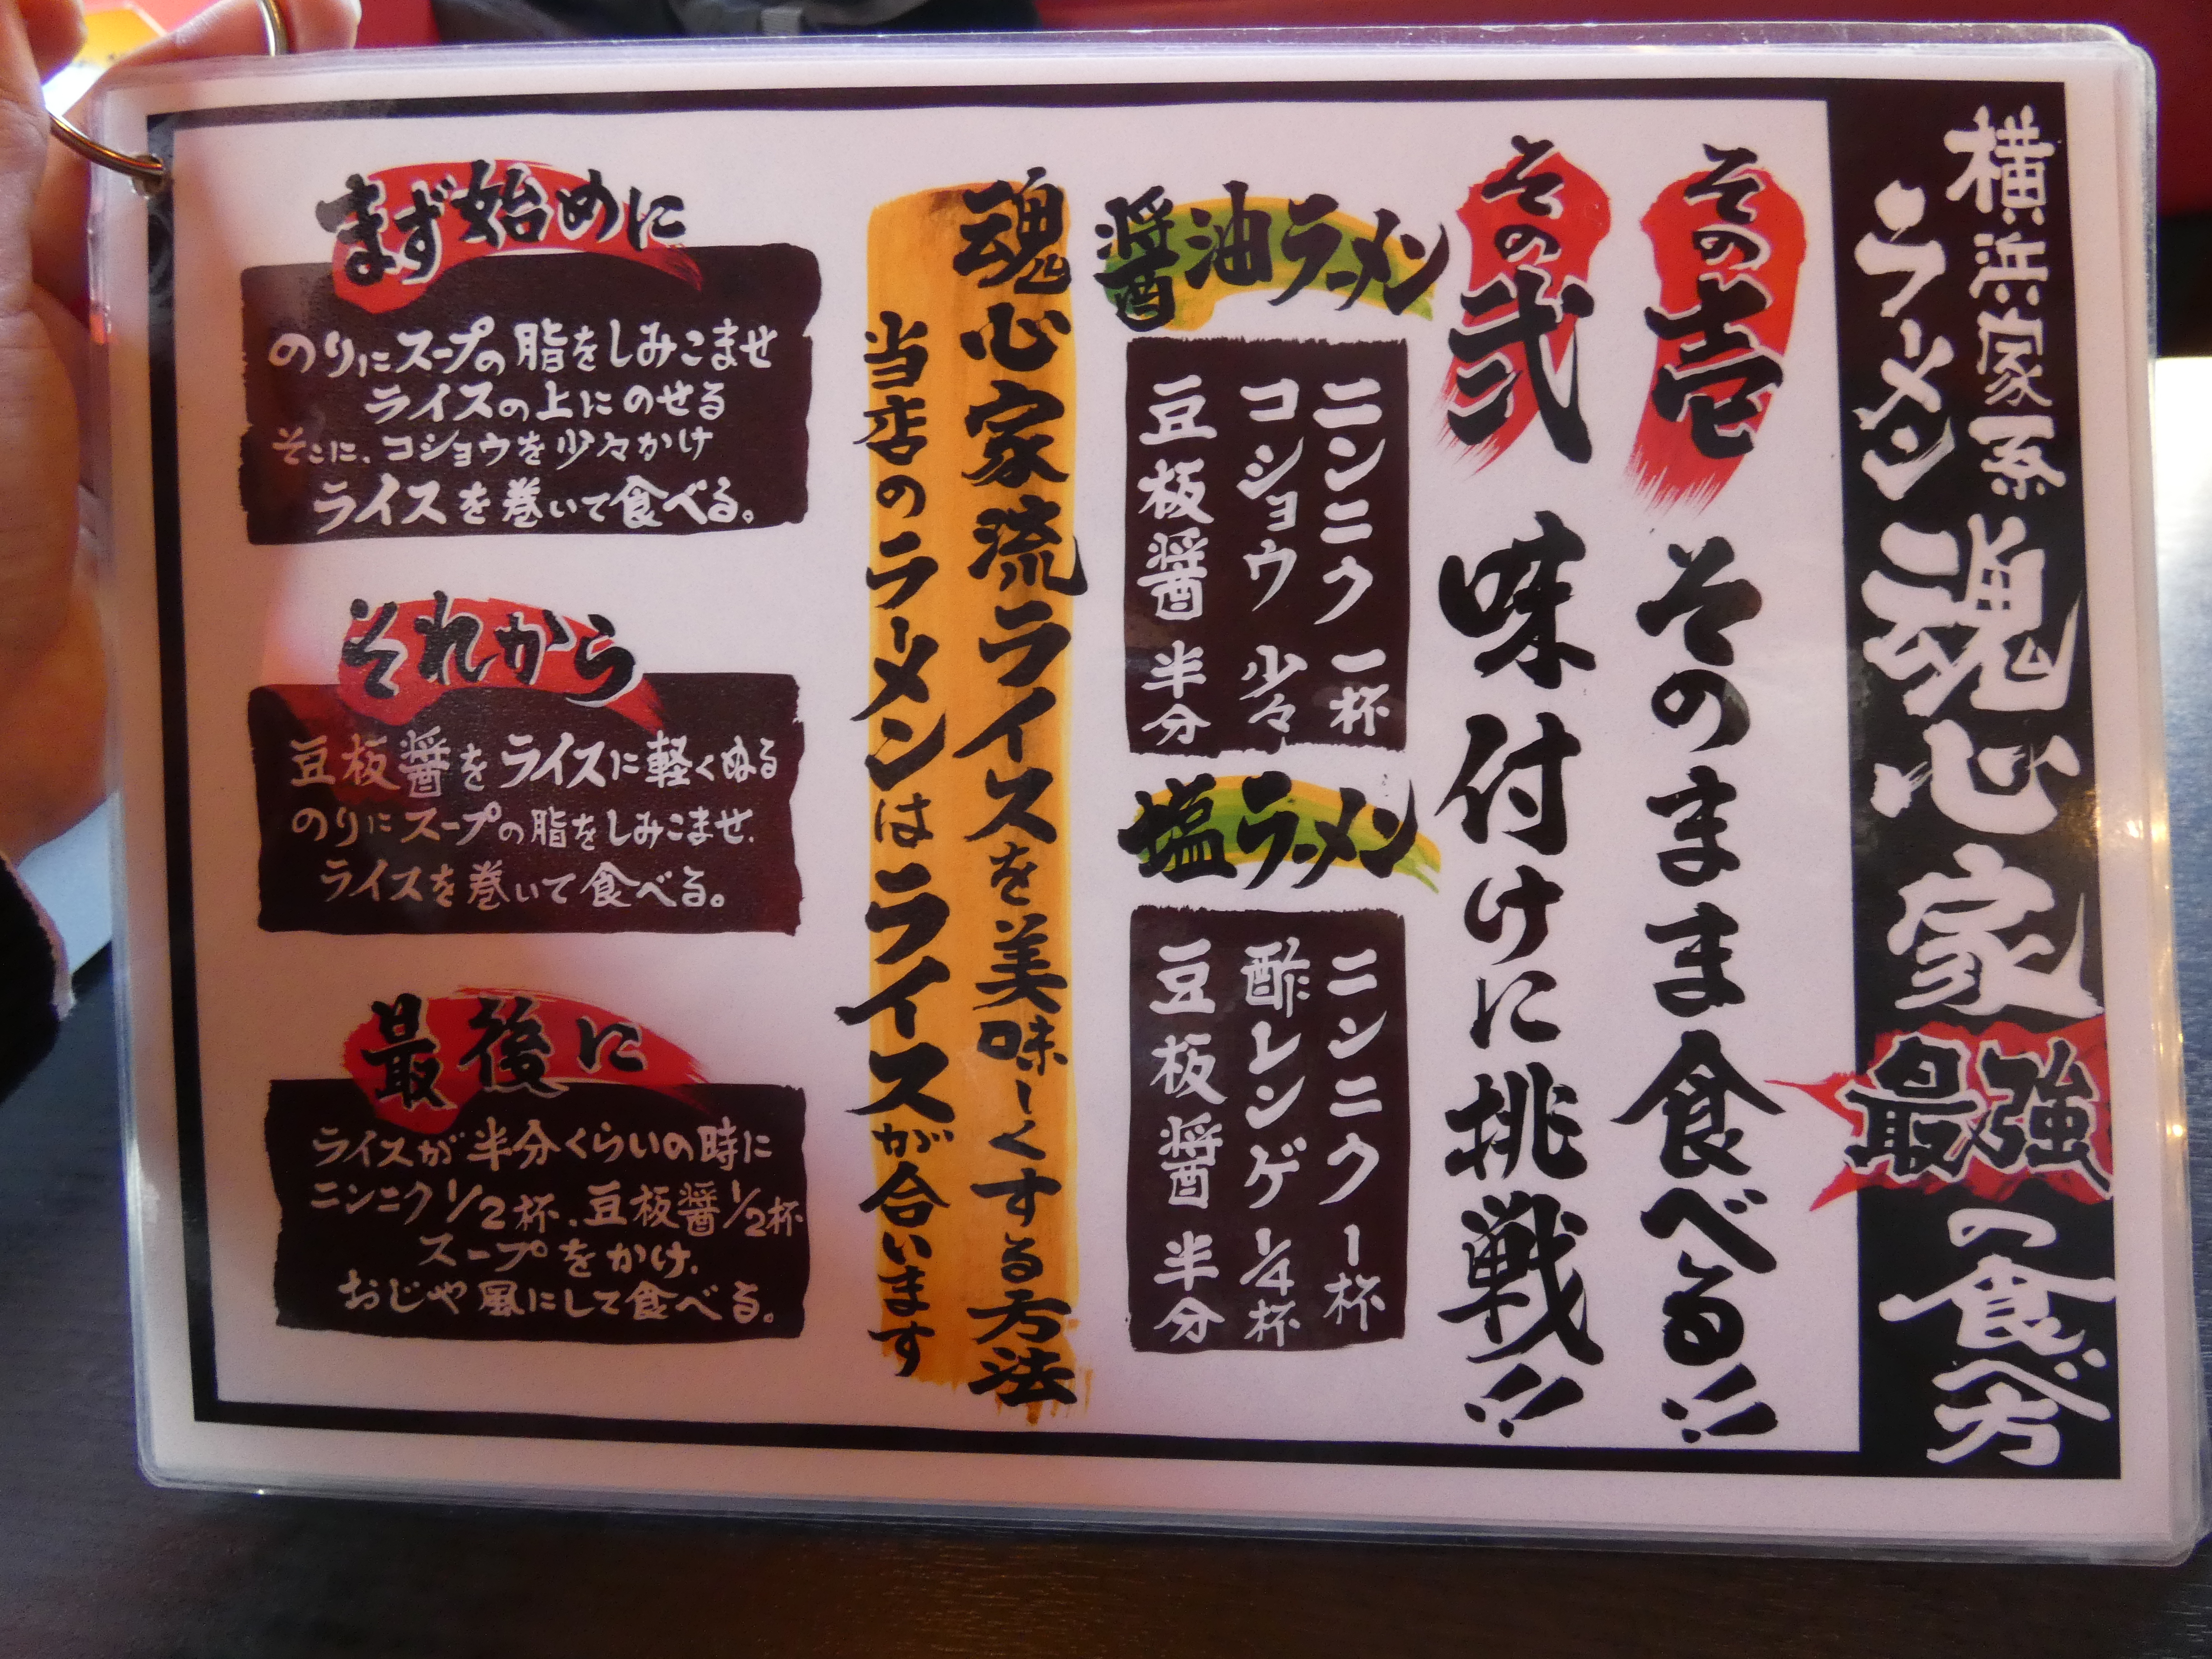 横浜家系
ラーメン
魂心家
最強
の食べ方
その壱
そのまま食べる!!
その弐
味付けに挑戦!!
醤油ラーメン
ニンニク 一杯
コショウ 少々
豆板醤 半分
塩ラーメン
ニンニク 1杯
酢レンゲ 1/4杯
豆板醤 半分
魂心家流ライスを美味しくする方法
当店のラーメンはライスが合います
まず始めに
のりにスープの脂をしみこませ
ライスの上にのせる
そこに、コショウを少々かけ
ライスを巻いて食べる。
それから
豆板醤をライスに軽くぬる
のりにスープの脂をしみこませ、
ライスを巻いて食べる。
最後に
ライスが半分くらいの時に
ニンニク1/2杯、豆板醤1/2杯
スープをかけ、
おじや風にして食べる。